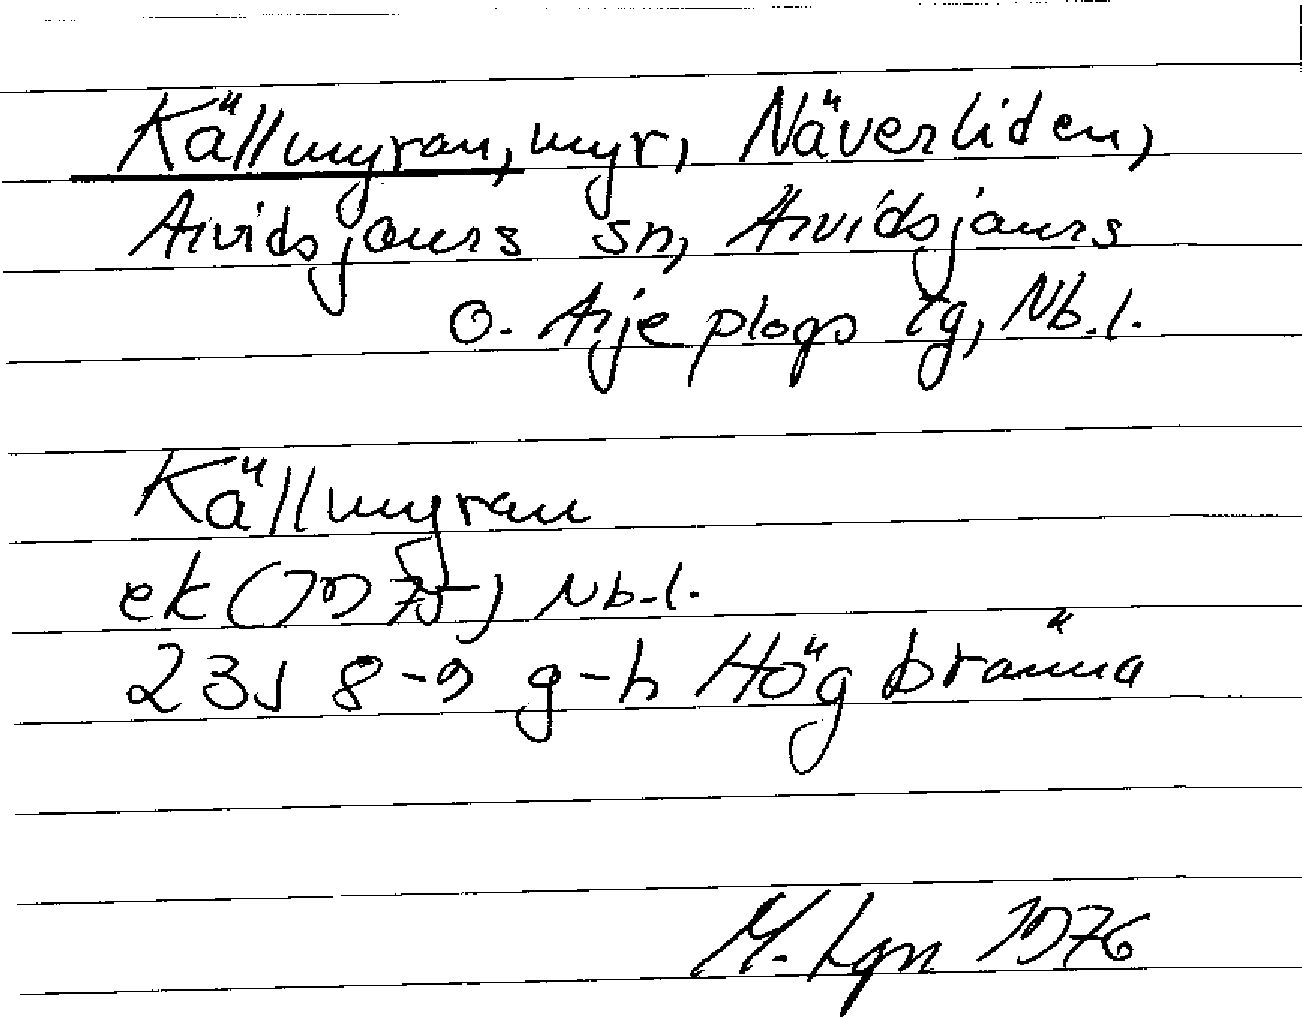 Källmyran, myr, Näverliden,
Arvidsjaurs sn, Arvidsjaurs
o. Arjeplogs tg, Nb.l.
Källmyran
ek (1975) Nb.l.
23J 8-9 g-h Högbränna
M. Lgn 1976